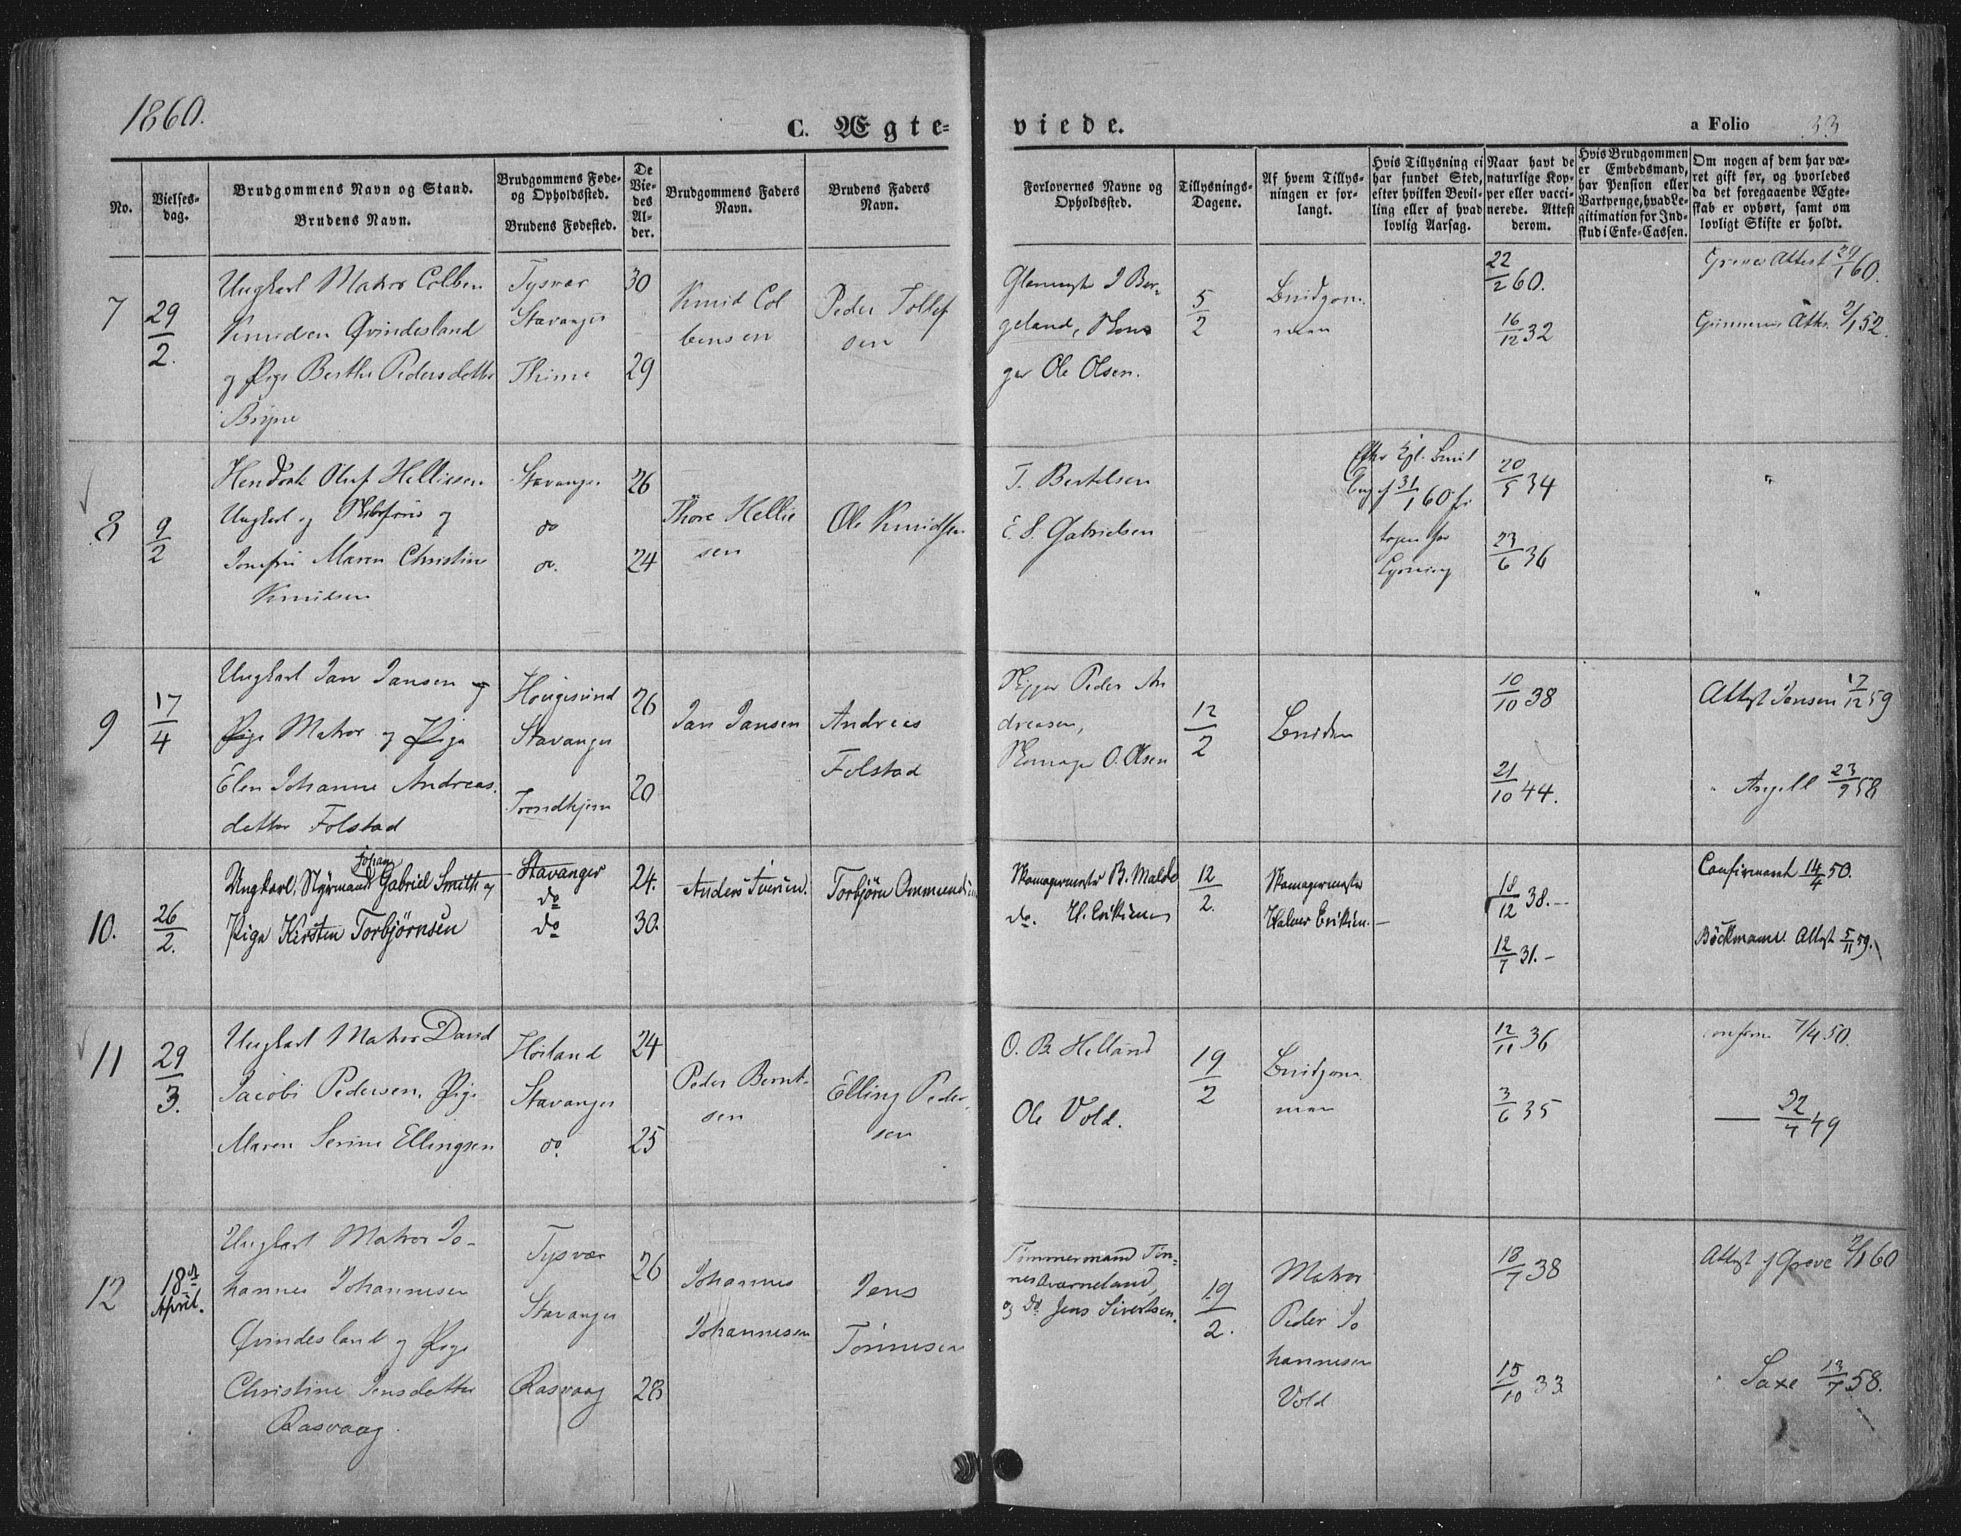 1860.
C. Ægte-
viede.
a Folio 33
No.
Vielses-
dag.
Brudgommens Navn og Stand.
Brudens Navn.
Brudgommens Føde-
og Opholdssted.
Brudens Fødested.
De
Vie-
des
Al-
der.
Brudgommens Faders
Navn.
Brudens Faders
Navn.
Forlovernes Navne og
Opholdssted.
Tillysnings-
Dagene.
Af hvem Tillys-
ningen er for-
langt.
Hvis Tillysning ei
har fundet Sted,
efter hvilken Bevil-
ling eller af hvad
lovlig Aarsag.
Naar havt de
naturlige Kop-
per eller vacci-
nerede. Attest
derom.
Hvis Brudgommen
er Embedsmand,
har Pension eller
Vartpenge, hvad Le-
gitimation for Ind-
skud i Enke-Cassen.
Om nogen af dem har væ-
ret gift før, og hvorledes
da det foregaaende Ægte-
skab er ophørt, samt om
lovligt Skifte er holdt.
7
29/2.
Ungkarl Matros Colben
Knudsen Øvindesland
og Pige Berthe Pedersdatter
Bryne
Tysvær
Stavanger
Thime
30
29
Knud Col
bensen
Peder Tollef
sen
Geland,
ger Ole Olsen.
5/2
Brudgom
men
22/2 60.
16/12 32
Greves Attest 29/1 60.
8
9/2
Hendrik Oluf Helliesen
Ungkarl og
Jomfru Maren Christine
Knudsen
Stavanger
do
do.
26
24
Thore Hellie
sen
Ole Knudsen
T. Bertelsen
E. S. Gabrielsen
Efter Kgl.
31/1 60
Lysning
20/5 34
23/6 36
9
17/4
Ungkarl Jan Jansen og
Pige Matros og Pige
Elen Johanne Andreas.
datter Folstad
Hougesund
Stavanger
Trondhjem
26
20
Jan Jansen
Andreas
Folstad
Skipper Peder An
dreasen,
Skomager O. Olsen
12/2
Bruden
10/10 38
21/10 44.
Attest Jensen 17/12 59
" Angell 23/9 58
10.
26/2.
Johan
Ungkarl, Styrmand Gabriel Smith og
Pige Kirsten Torbjørnsen
Stavanger
do
do
24.
30.
Anders Iversen.
Torbjørn Ommundsen
Skomagermester B. Malde
do. H. Eriksen
12/2.
Skomagermester
Halvor Eriksen.
18/12 38.-
12/7 31.-
Confirmeret 14/4 50.
Böckmans Attest 5/11 59.
11
29/3.
Ungkarl Matros David
Jacobi Pedersen, Pige
Maren Serine Ellingsen
Høiland
Stavanger
do
24
25
Peder Bernt-
sen
Elling Peder-
sen
O. B. Helland
Ole Vold.
19/2
Brudgom
men
12/11 36
3/6 35
confirm 7/4 50.
— 22/4 49
12
18de
April.
Ungkarl Matros Jo-
hannes Johannesen
Øvindesland og Pige
Christine Jensdatter
Rasvaag
Tysvær
Stavanger
Rasvaag
26
28
Johannes
Johannesen
Jens
Tönnesen
Timmermand Tön-
nes Aværneland,
og do. Jens Sivertsen.
19/2.
Matros
Peder Jo
hannesen
Vold
18/7 38
15/10 33
Attest f Greve 2/1 60
" Saxe 13/7 58.